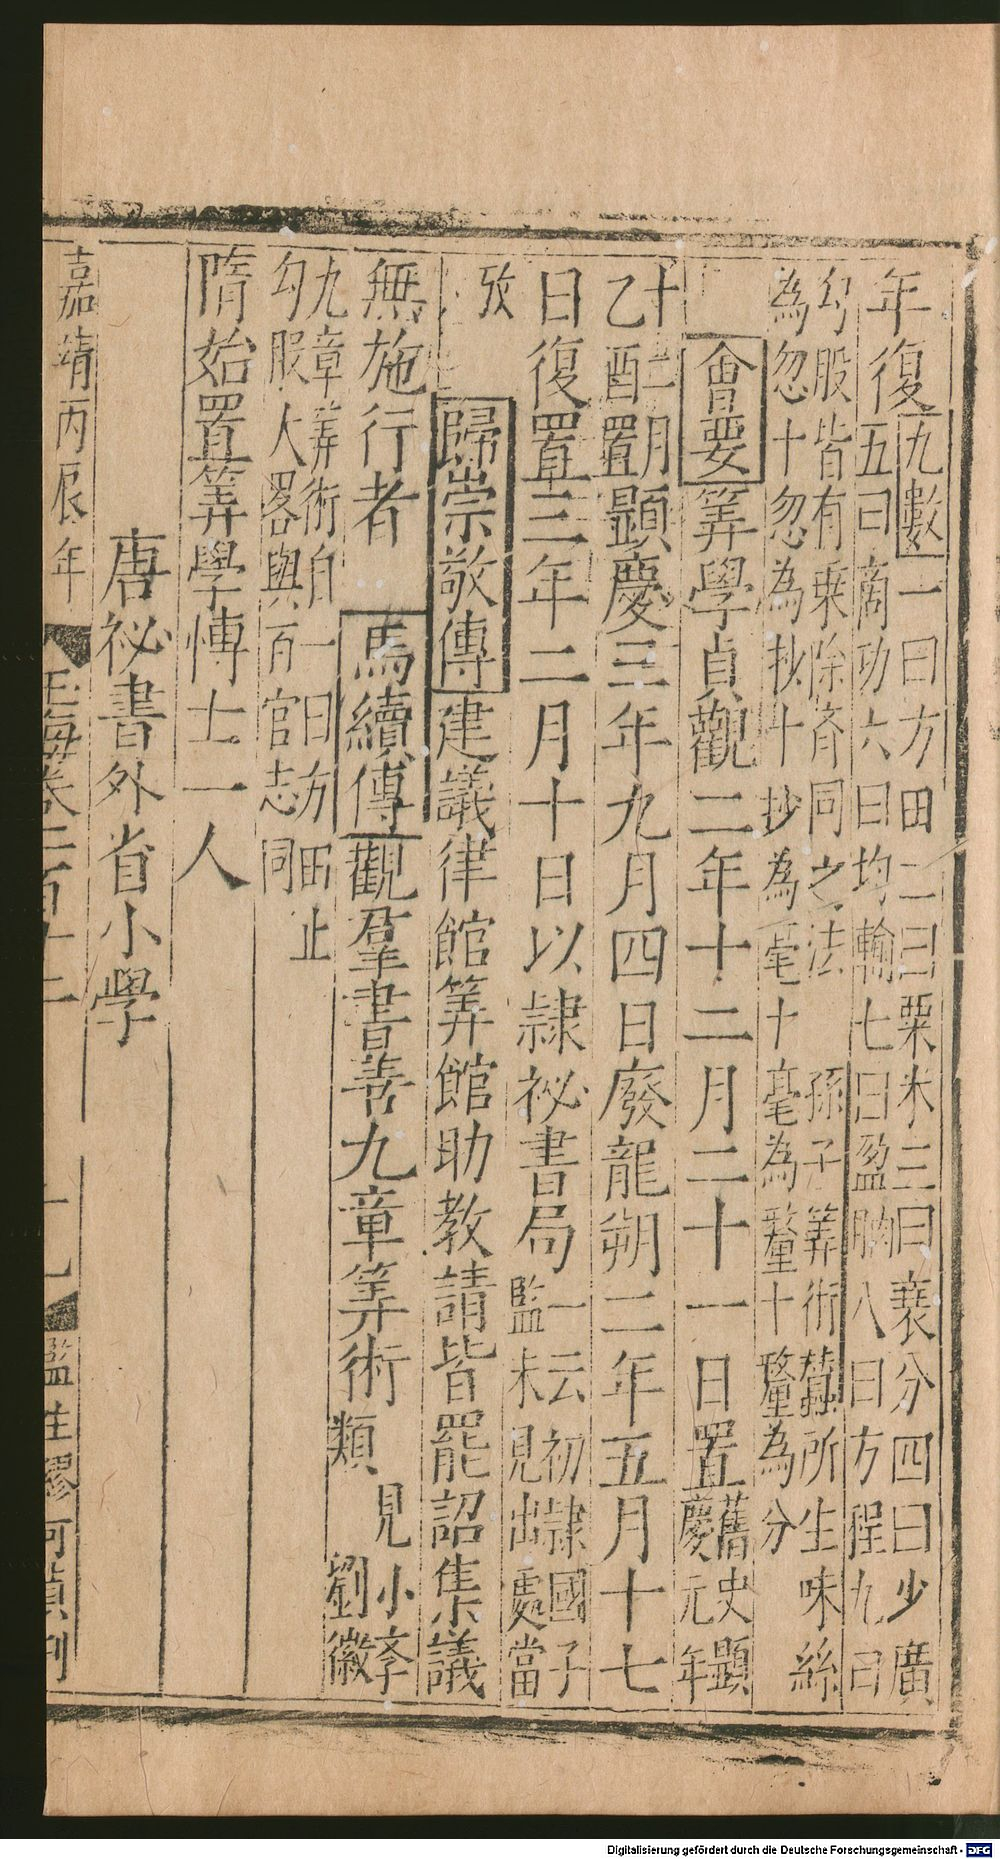 年復九數一曰方田二曰粟米三曰衰分四曰少廣
五曰商功六曰均輸七曰盈朒八曰方程九曰
勾股皆有乗除斉同之法 孫子筭術蠶所生吐絲
為忽十忽為抄十抄為毫十毫為釐十釐為分
會要筭學貞觀二年十二月二十一日置舊史顕
慶元年
十二月
乙酉置顕慶三年九月四日廢龍朔二年五月十七
日復置三年二月十日以隷祕書局一云初隷國子
監未見出處當
攷
歸崇敬傳建議律館筭館助教請皆罷詔集議
無施行者 馬續傳觀羣書善九章筭術見小李
類 劉徽
九章筭術自一曰方田止
勾股大畧與百官志同
隋始置筭學博士一人
唐祕書外省小學
嘉靖丙辰年 玉海卷一百十二 十九 監生繆可貞刊
Digitalisierung gefördert durch die Deutsche Forschungsgemeinschaft - DFG